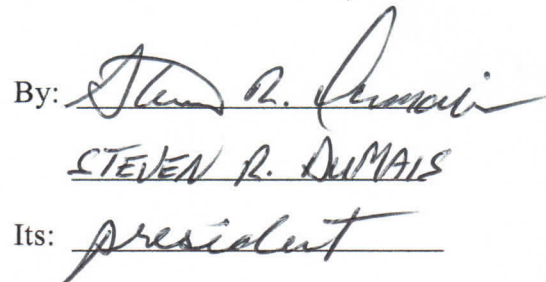 By: Steven R. Dumais
STEVEN R. DUMAIS
Its: president